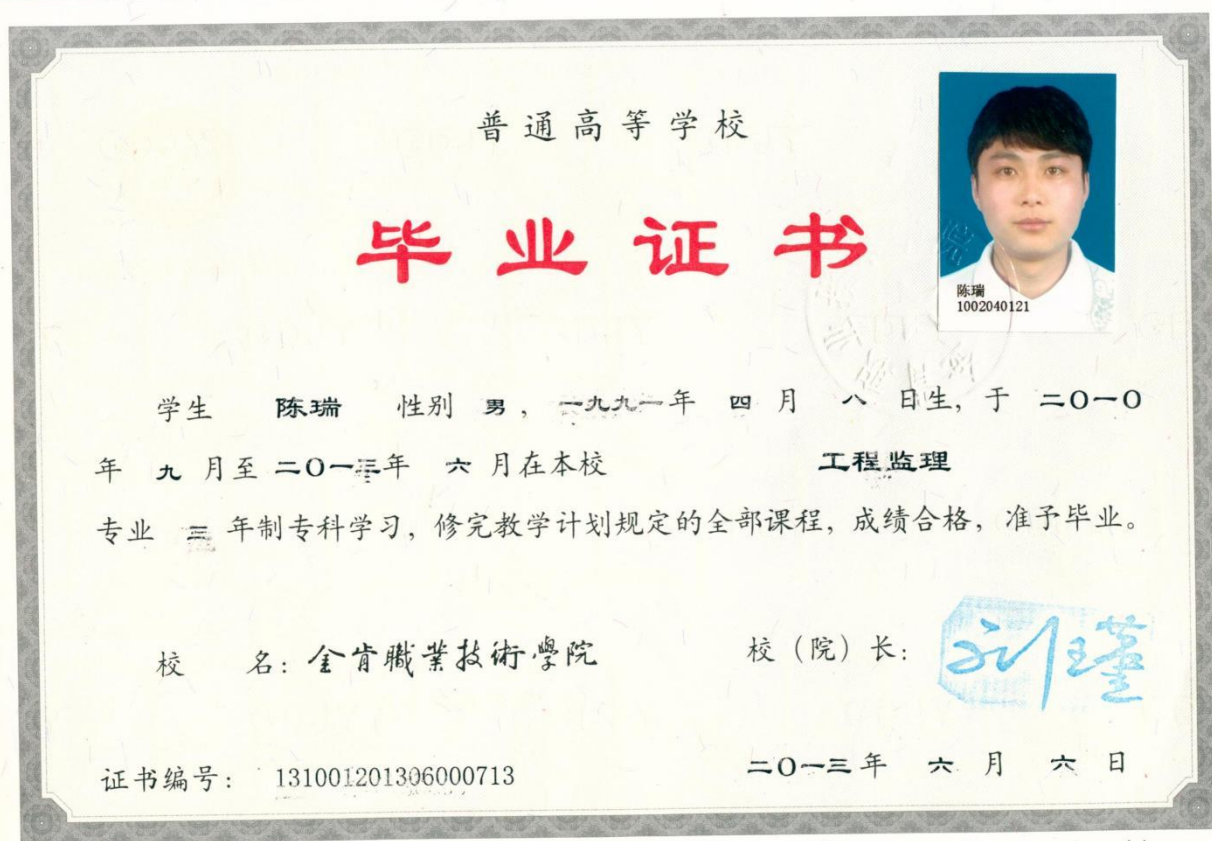 普通高等学校
毕业证书
陈瑞
1002040121
学生 陈瑞 性别 男，一九九一年 四 月 八 日生，于 二〇一〇
年 九 月至 二〇一三年 六 月在本校 工程监理
专业 三 年制专科学习，修完教学计划规定的全部课程，成绩合格，准予毕业。
校 名：金肯職業技術學院 校（院）长：
证书编号： 131001201306000713 二〇一三年 六 月 六 日